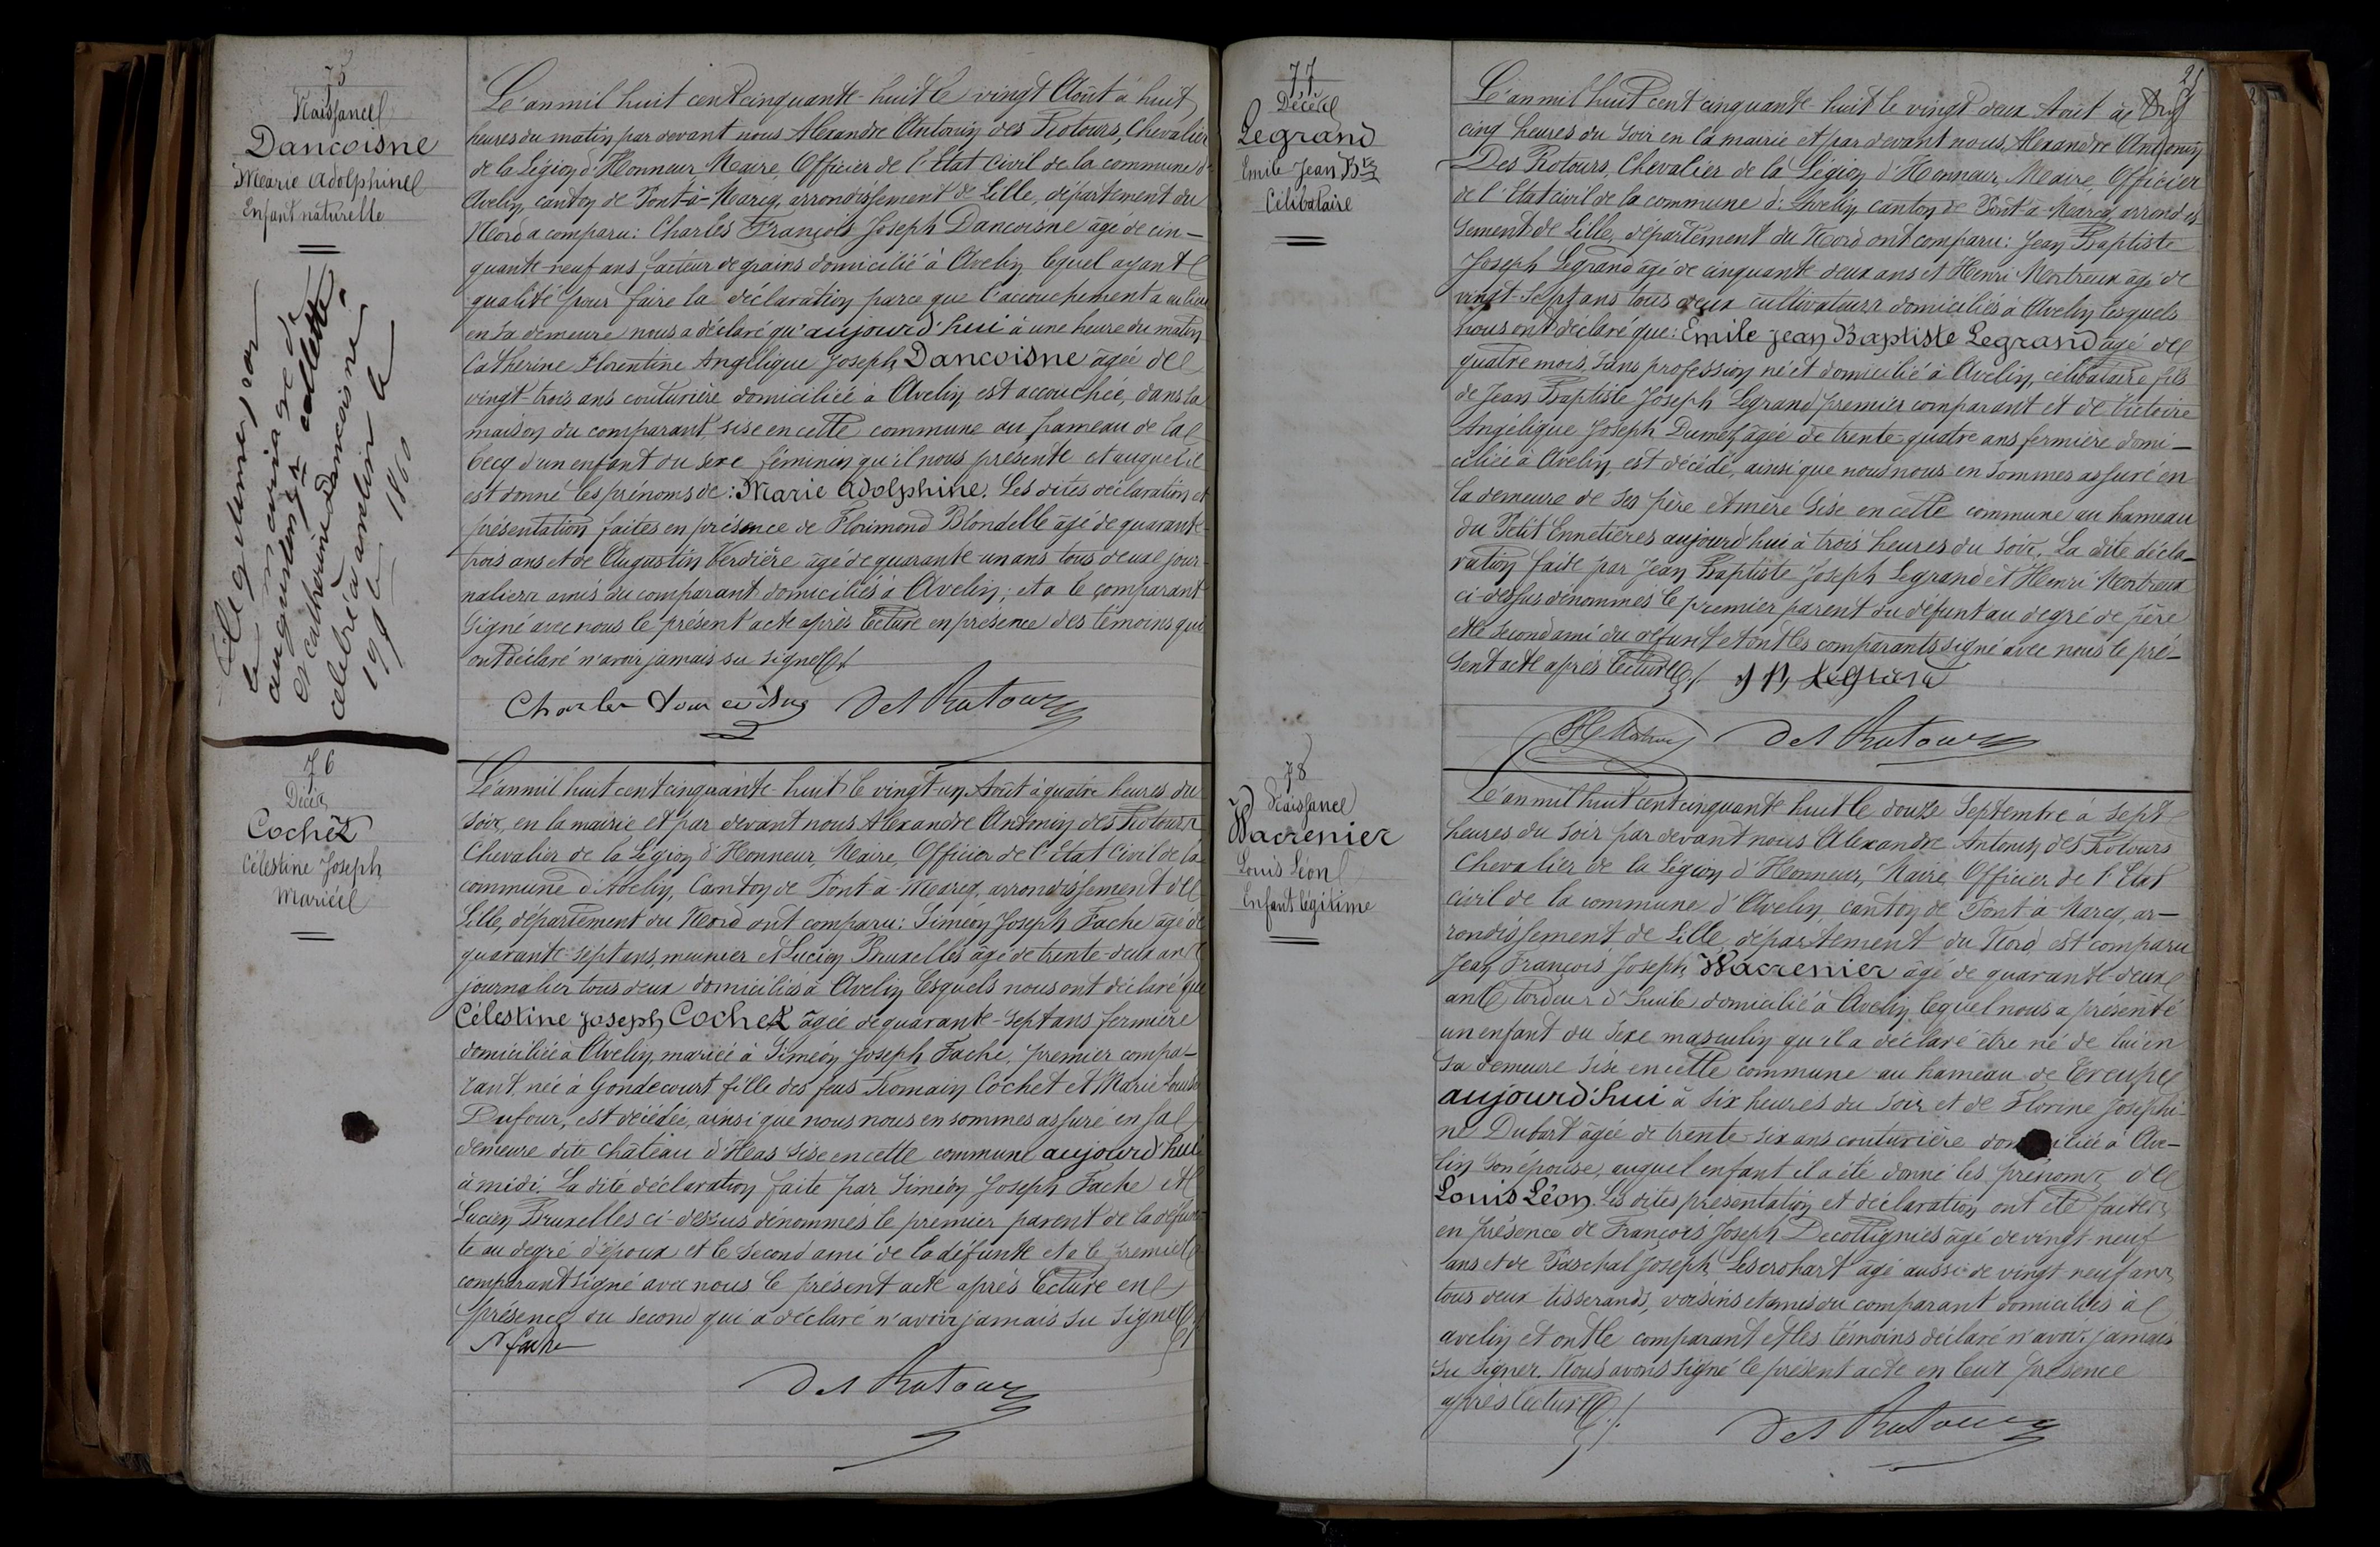 75
Naissance
Dancoisne
Marie Adolphine
Enfant naturelle
légitimée par
le mariage de
augustin collette
et catherine dancoisne
célébré à avelin le
19 1860
L'an mil huit cent cinquante-huit le vingt Août à huit
heures du matin par devant nous Alexandre Antonin des Rotours, Chevalier
de la Légion d'Honneur, Maire, Officier de l'Etat civil de la commune d'
Avelin, canton de Pont-à-Marcq, arrondissement de Lille, département du
Nord a comparu: Charles François Joseph Dancoisne âgé de cin-
quante-neuf ans, facteur de grains domicilié à Avelin lequel ayant
qualité pour faire la déclaration parce que l'accouchement a eu lieu
en sa demeure nous a déclaré qu'aujourd'hui à une heure du matin
Catherine Florentine Angélique Joseph Dancoisne âgée de
vingt-trois ans couturière domiciliée à Avelin est accouchée, dans la
maison du comparant, sise en cette commune au hameau de la
becq d'un enfant du sexe féminin qu'il nous présente et auquel il
est donné les prénoms de: Marie Adolphine. Les dites déclaration et
présentation faites en présence de Florimond Blondelle âgé de quarante-
trois ans et de Augustin Verdière âgé de quarante un ans tous deux jour-
naliers amis du comparant domiciliés à Avelin; et a le comparant
signé avec nous le présent acte après lecture en présence des témoins qui
ont déclaré n'avoir jamais su signer ./.
Charles Dancoisne des Rotours
76
Décès
Cochez
Célestine Joseph
Mariée
L'an mil huit cent cinquante-huit le vingt-un Août à quatre heures du
soir, en la mairie et par devant nous Alexandre Antonin des Rotours
Chevalier de la Légion d'Honneur, Maire, Officier de l'Etat Civil de la
commune d'Avelin, Canton de Pont-à-Marcq, arrondissement de
Lille, département du Nord ont comparu: Siméon Joseph Fache âgé de
quarante-sept ans, meunier et Lucien Bruxelles âgé de trente-deux ans
journalier tous deux domiciliés à Avelin lesquels nous ont déclaré que
Célestine Joseph Cochez âgée de quarante-sept ans fermière
domiciliée à Avelin, mariée à Siméon Joseph Fache, premier compa-
rant, née à Gondecourt fille des feus Romain Cochet et Marie Louise
Dufour, est décédée, ainsi que nous nous en sommes assuré en sa
demeure dite château d'Héas sise en cette commune aujourd'hui
à midi. La dite déclaration faite par Siméon Joseph Fache et
Lucien Bruxelles ci-dessus dénommés le premier parent de la défun-
te au degré d'époux et le second ami de la défunte et a le premier
comparant signé avec nous le présent acte après lecture en
présence du second qui a déclaré n'avoir jamais su signer ./.
S fache
des Rotours
77
Décès
Legrand
Emile Jean Bte
Célibataire
L'an mil huit cent cinquante-huit le vingt deux Août à
cinq heures du soir en la mairie et par devant nous, Alexandre Antonin
Des Rotours, Chevalier de la Légion d'Honneur, Maire, Officier
de l'Etat civil de la commune d'Avelin, canton de Pont-à-Marcq, arrondis-
sement de Lille, département du Nord ont comparu: Jean Baptiste
Joseph Legrand âgé de cinquante deux ans et Henri Mortreux âgé de
vingt-sept ans tous deux cultivateurs domiciliés à Avelin lesquels
nous ont déclaré que: Emile Jean Baptiste Legrand âgé de
quatre mois, sans profession né et domicilié à Avelin, célibataire fils
de Jean Baptiste Joseph Legrand premier comparant et de Victoire
Angélique Joseph Dumez âgée de trente-quatre ans fermière domi-
ciliée à Avelin, est décédé, ainsi que nous nous en sommes assuré en
la demeure de ses père et mère sise en cette commune au hameau
du Petit Ennetières aujourd'hui à trois heures du soir. La dite décla-
ration faite par Jean Baptiste Joseph Legrand et Henri Mortreux
ci-dessus dénommés le premier parent du défunt au degré de père
et le second ami du défunt et ont les comparants signé avec nous le pré-
sent acte après lecture ./. J B Legrand
H Mortreux des Rotours
78
Naissance
Wacrenier
Louis Léon
Enfant légitime
L'an mil huit cent cinquante huit le douze Septembre à sept
heures du soir par devant nous Alexandre Antonin des Rotours
Chevalier de la Légion d'Honneur, Maire, Officier de l'Etat
civil de la commune d'Avelin, canton de Pont-à-Marcq, ar-
rondissement de Lille, département du Nord, est comparu
Jean François Joseph Wacrenier âgé de quarante-deux
ans tordeur d'huile domicilié à Avelin lequel nous a présenté
un enfant du sexe masculin qu'il a déclaré être né de lui en
sa demeure sise en cette commune au hameau de
aujourd'hui à six heures du soir et de Florine Joséphi-
ne Dubart âgée de trente-six ans couturière domiciliée à Ave-
lin son épouse, auquel enfant il a été donné les prénoms de
Louis Léon. Les dites présentation et déclaration ont été faites
en présence de François Joseph Decottignies âgé de vingt-neuf
ans et de Paschal Joseph Lescrohart âgé aussi de vingt-neuf ans
tous deux tisserands, voisins et amis du comparant domiciliés à
avelin et ont le comparant et les témoins déclaré n'avoir jamais
su signer. Nous avons signé le présent acte en leur présence
après lecture ./.
des Rotours